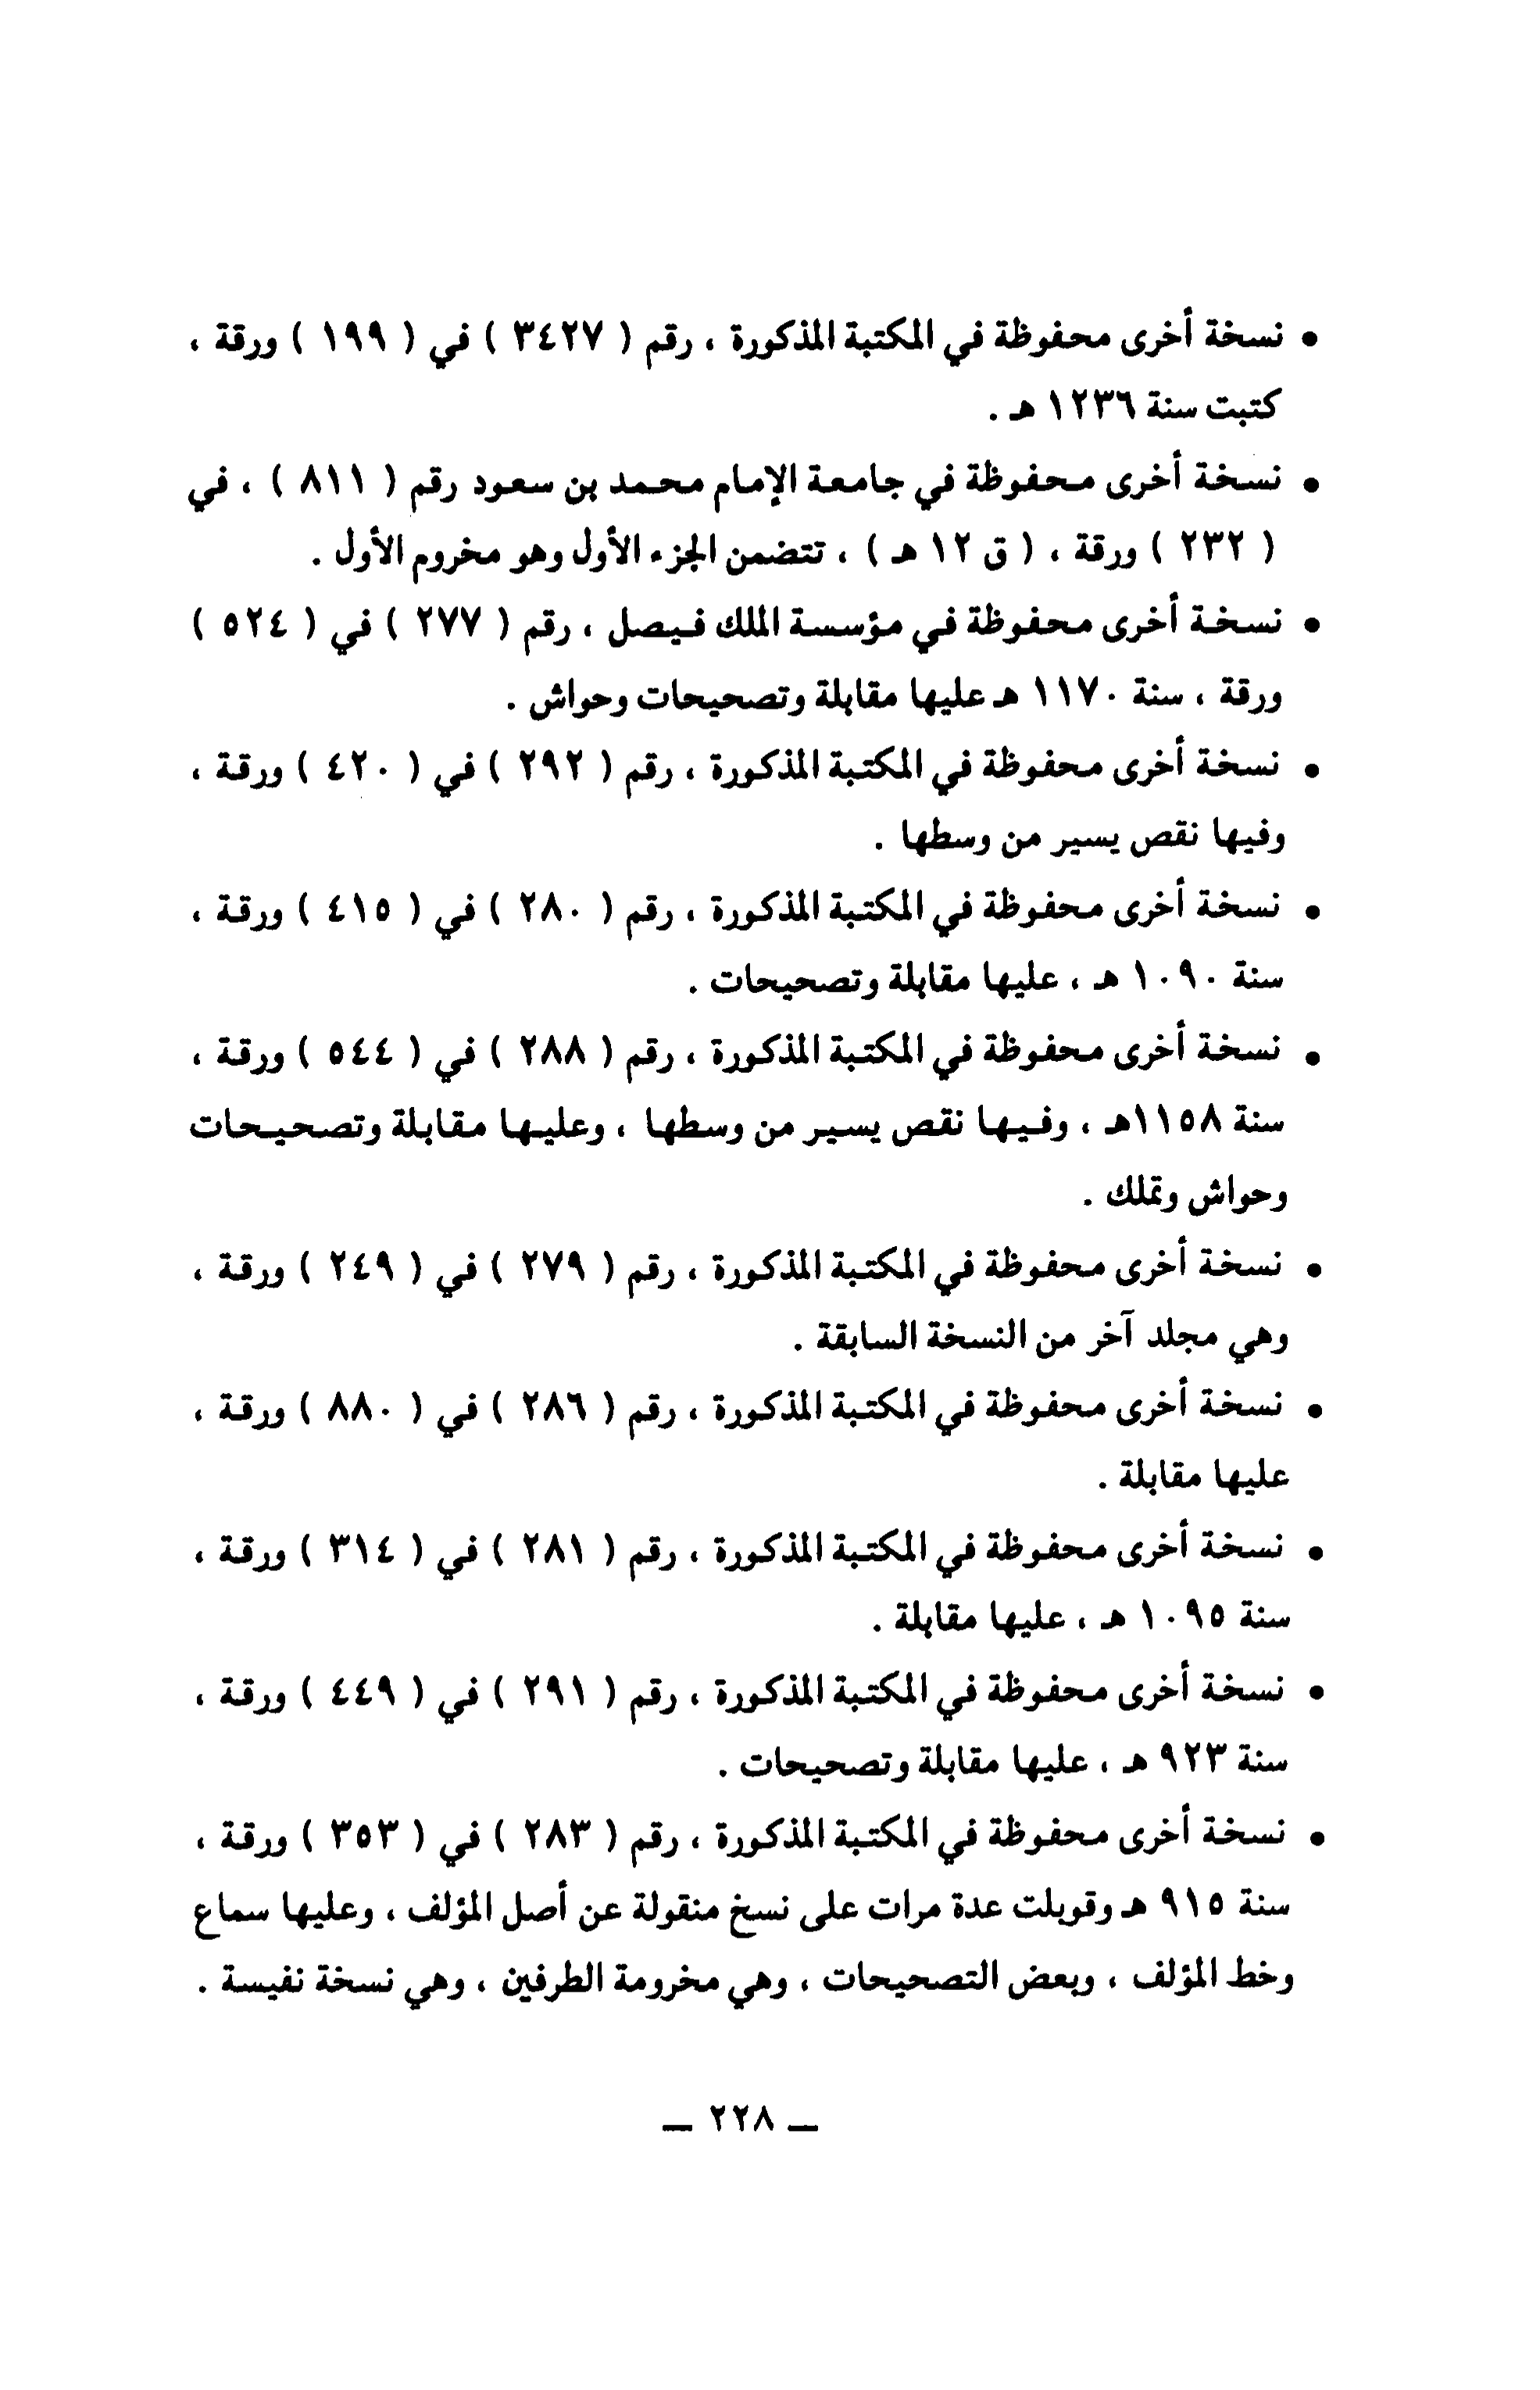 • نسخة أخرى محفوظة في المكتبة المذكورة ، رقم ( ٣٤٢٧ ) في ( ١٩٩ ) ورقة ،
كتبت سنة ١٢٣٦ هـ .
• نسخة أخرى محفوظة في جامعة الإمام محمد بن سعود رقم ( ٨١١ ) ، في
( ٢٣٢ ) ورقة ، ( ق ١٢ هـ ) ، تتضمن الجزء الأول وهو مخروم الأول .
• نسخة أخرى محفوظة في مؤسسة الملك فيصل ، رقم ( ٢٧٧ ) في ( ٥٢٤ )
ورقة ، سنة ١١٧٠ هـ عليها مقابلة وتصحيحات وحواش .
• نسخة أخرى محفوظة في المكتبة المذكورة ، رقم ( ٢٩٢ ) في ( ٤٢٠ ) ورقة ،
وفيها نقص يسير من وسطها .
• نسخة أخرى محفوظة في المكتبة المذكورة ، رقم ( ٢٨٠ ) في ( ٤١٥ ) ورقة ،
سنة ١٠٩٠ هـ ، عليها مقابلة وتصحيحات .
• نسخة أخرى محفوظة في المكتبة المذكورة ، رقم ( ٢٨٨ ) في ( ٥٤٤ ) ورقة ،
سنة ١١٥٨هـ ، وفيها نقص يسير من وسطها ، وعليها مقابلة وتصحيحات
وحواش وتملك .
• نسخة أخرى محفوظة في المكتبة المذكورة ، رقم ( ٢٧٩ ) في ( ٢٤٩ ) ورقة ،
وهي مجلد آخر من النسخة السابقة .
• نسخة أخرى محفوظة في المكتبة المذكورة ، رقم ( ٢٨٦ ) في ( ٨٨٠ ) ورقة ،
عليها مقابلة .
• نسخة أخرى محفوظة في المكتبة المذكورة ، رقم ( ٢٨١ ) في ( ٣١٤ ) ورقة ،
سنة ١٠٩٥ هـ ، عليها مقابلة .
• نسخة أخرى محفوظة في المكتبة المذكورة ، رقم ( ٢٩١ ) في ( ٤٤٩ ) ورقة ،
سنة ٩٢٣ هـ ، عليها مقابلة وتصحيحات .
• نسخة أخرى محفوظة في المكتبة المذكورة ، رقم ( ٢٨٣ ) في ( ٣٥٣ ) ورقة ،
سنة ٩١٥ هـ وقوبلت عدة مرات على نسخ منقولة عن أصل المؤلف ، وعليها سماع
وخط المؤلف ، وبعض التصحيحات ، وهي مخرومة الطرفين ، وهي نسخة نفيسة .
ــ ٢٢٨ ــ